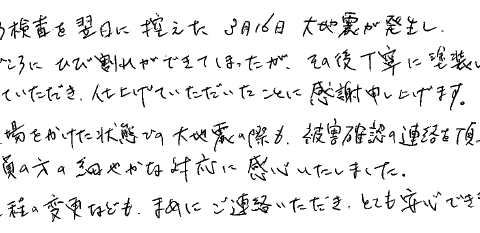 検査を翌日に控えた3月16日大地震が発生し、
ころにひび割れができてしまったが、その後丁寧に塗装し
ていただき、仕上げていただいたことに感謝申し上げます。
場をかけた状態での大地震の際も、被害確認の連絡を頂
員の方の細やかな対応に感心いたしました。
程の変更なども、まめにご連絡いただき、とても安心でき